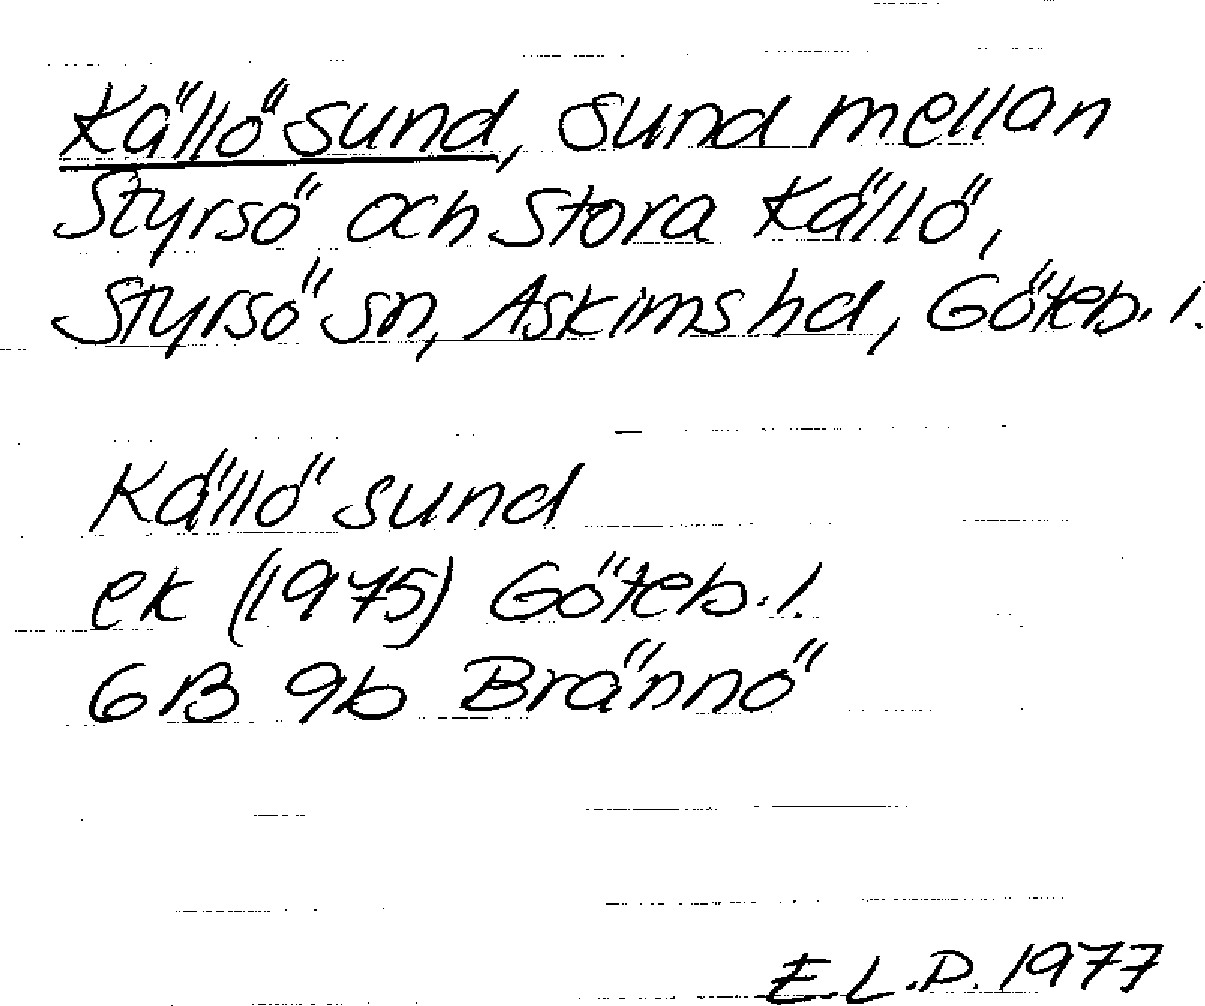 Källö sund, sund mellan
Styrsö och Stora Källö,
Styrsö sn, Askims hd, Göteb. l.
Källö sund
ek (1975) Göteb. l.
6B 9b Brännö
E.L.P. 1977